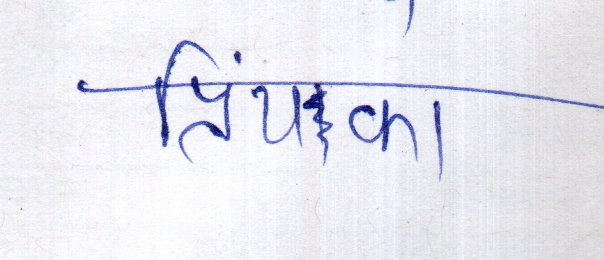 प्रिंयका